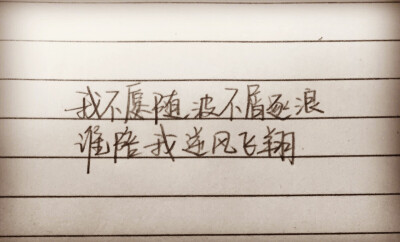 我不愿随波不屑逐浪
谁陪我逆风飞翔